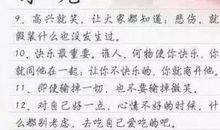 9、高兴就笑，让大家都知道；悲伤，就
假装什么也没发生过。
10、快乐最重要。谁人、何物使你快乐，你
就同他在一起；让你不快乐的，你就离开他。
11、即使输掉一切，也不要输掉微笑。
12、对自己好一点，心情不好的时候，什
么都别考虑，去吃自己爱吃的吧。